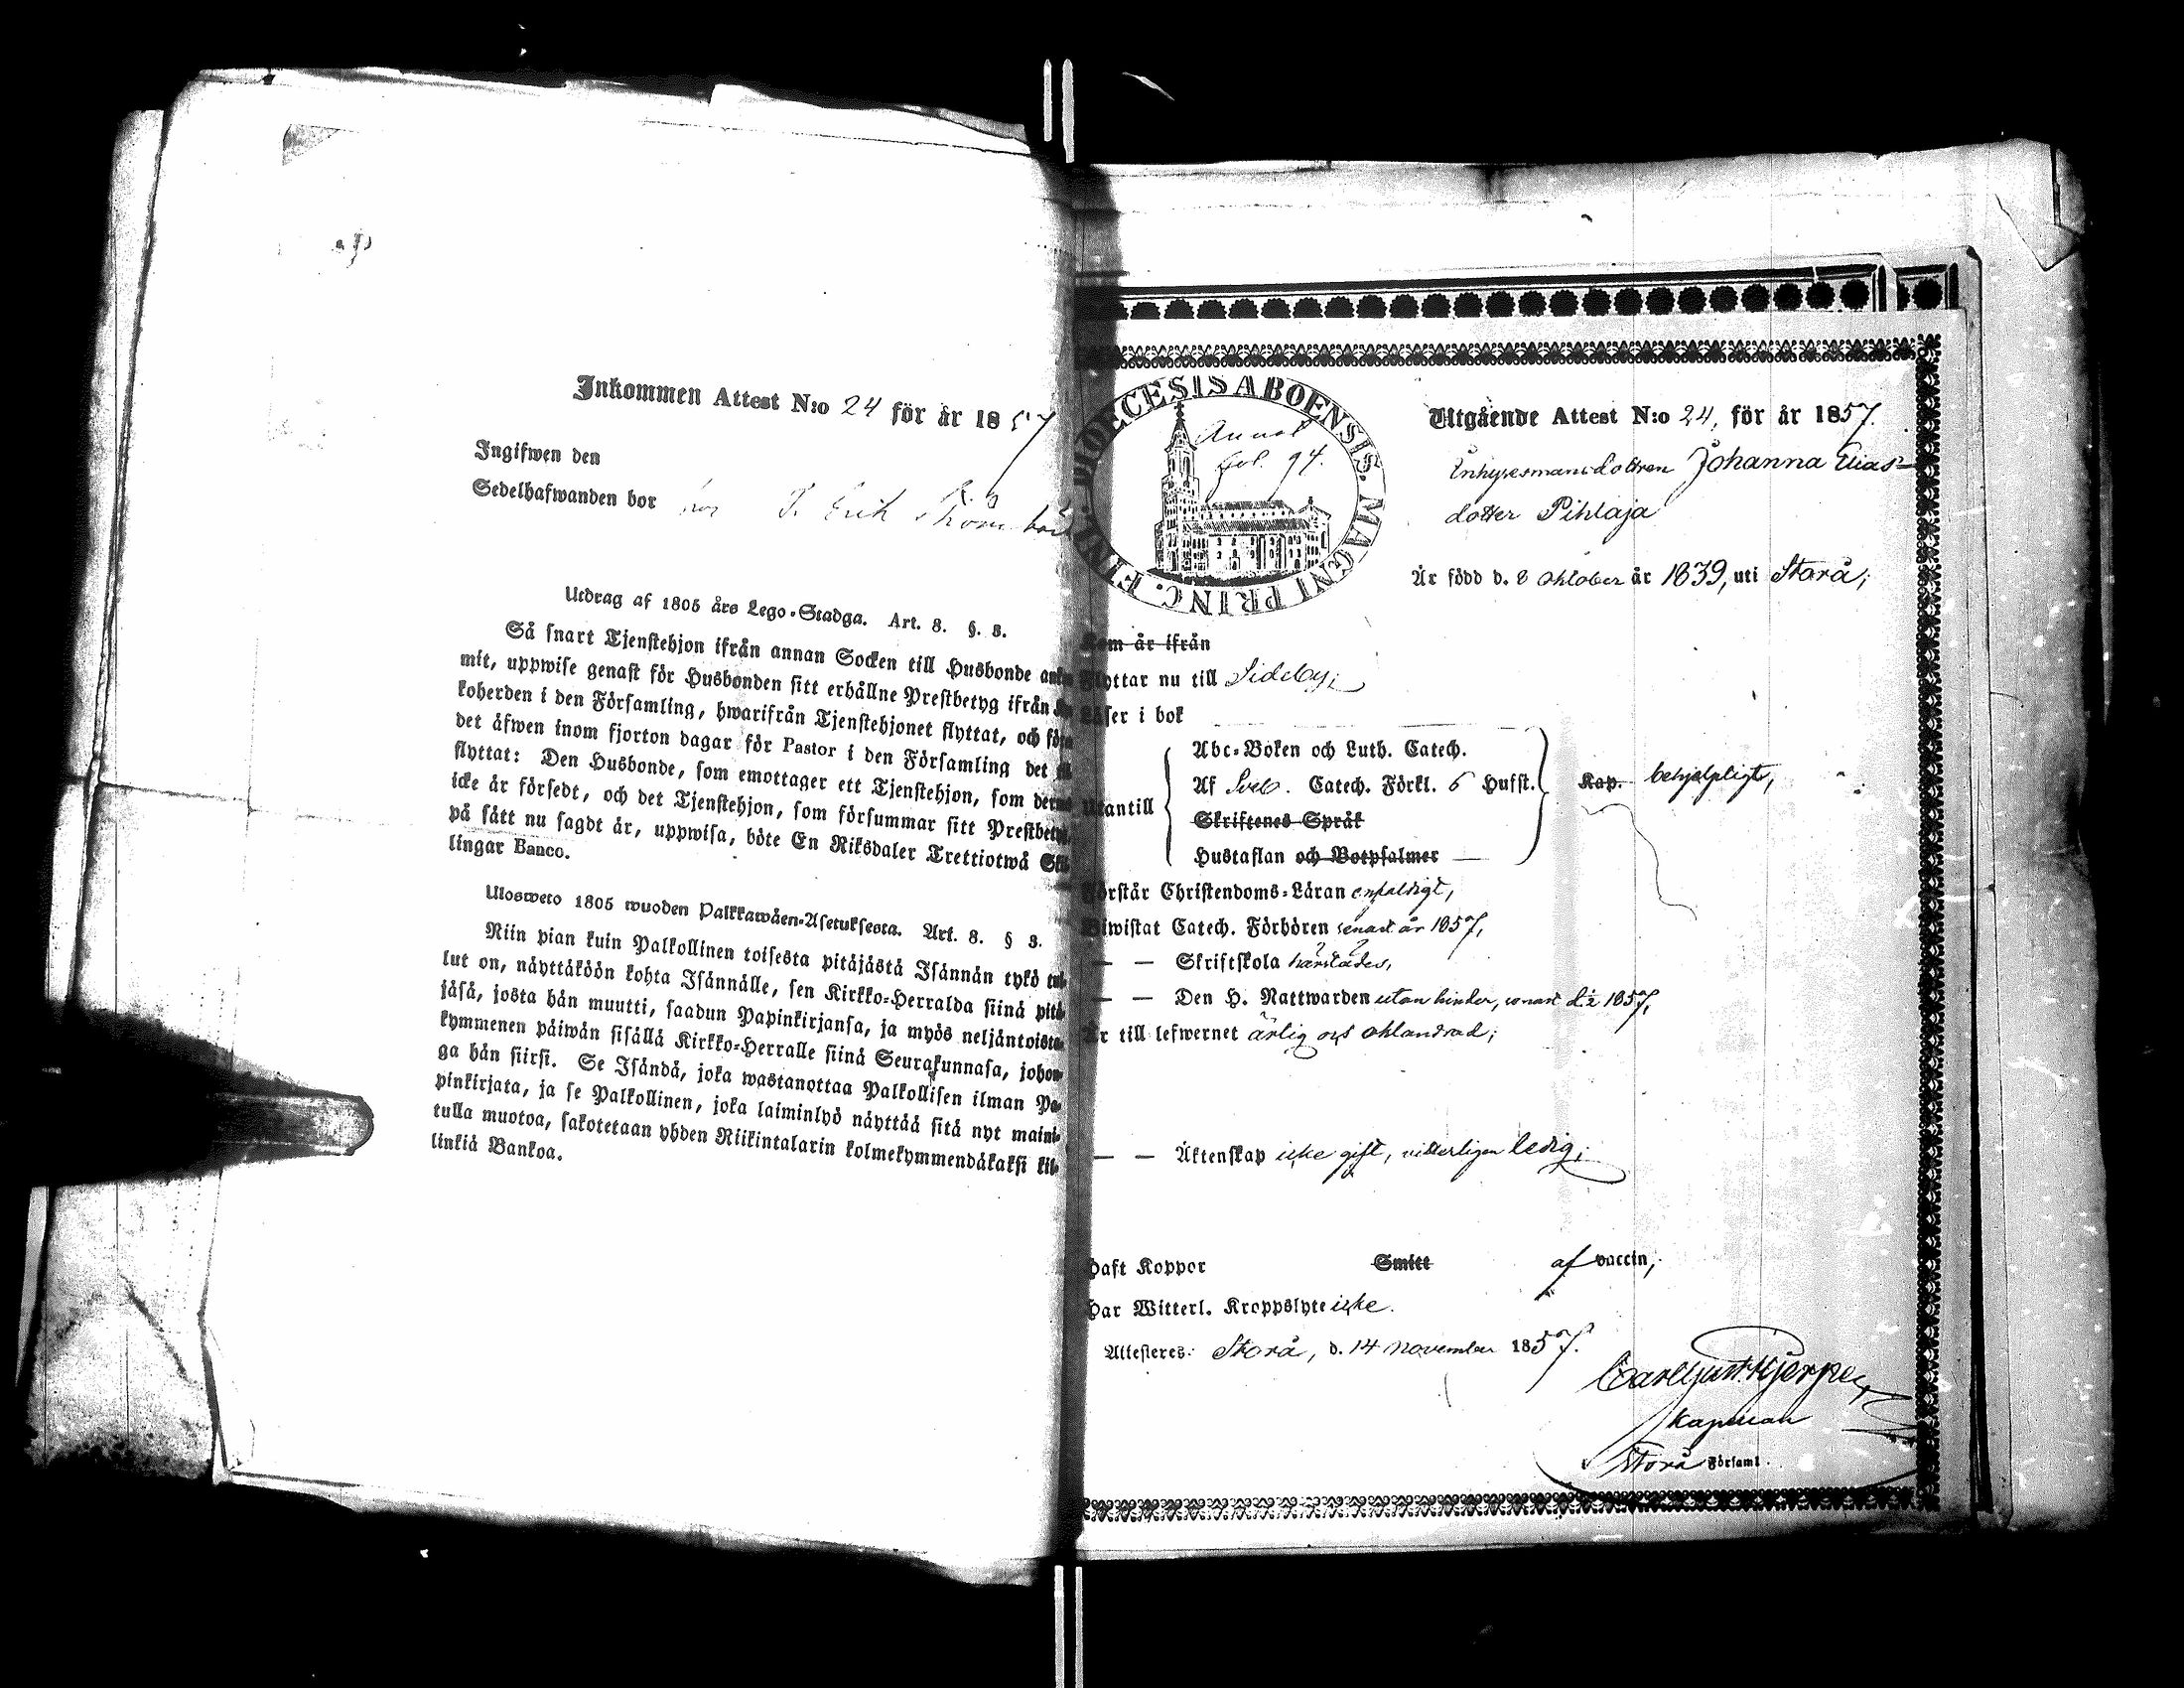 Inkommen Attest N:o 24 för år 1857
Ingifwen den
Sedelhafwanden bor hos Erik
Utdrag af 1805 års Lego-Stadga. Art. 8. §. 3.
Så snart Tjenstehjon ifrån annan Socken till Husbonde
mit, uppwise genast för Husbonden sitt erhållne Prestbetyg ifrån
koherden i den Församling, hwarifrån Tjenstehjonet flyttat, och
det äfwen inom fjorton dagar för Pastor i den Församling det
flyttat: Den Husbonde, som emottager ett Tjenstehjon, som
icke är försedt, och det Tjenstehjon, som försummar sitt
på sätt nu sagdt är, uppwisa, böte En Riksdaler Trettiotwå
lingar Banco.
Ulosweto 1805 wuoden Palkkawäen-Asetuksesta. Art. 8. § 3.
Niin pian kuin Palkollinen toisesta pitäjästä Isännän tykö tul-
lut on, näyttäköön kohta Isännälle, sen Kirkko-Herralda siinä pitä-
jäsä, josta hän muutti, saadun Papinkirjansa, ja myös neljäntoista-
kymmenen päiwän sisällä Kirkko-Herralle siinä Seurakunnasa, johon-
ga hän siirsi. Se Isändä, joka wastanottaa Palkollisen ilman Pa-
pinkirjata, ja se Palkollinen, joka laiminlyö näyttää sitä nyt maini-
tulla muotoa, sakotetaan yhden Riikintalarin kolmekymmendäkaksi kil-
linkiä Bankoa.
DIOECESIS ABOENSIS. MAGNI PRINC. FINL.
Annot
fol. 94.
Utgående Attest N:o 24, för år 1857.
Inhysesmansdottren Johanna Elias-
dotter Pihlaja
Är född d. 8 oktober år 1839, uti Storå;
Kom år ifrån
Flyttar nu till Sideby;
Läser i bok
Abc-Boken och Luth. Catech.
Utantill Af Sveb. Catech. Förkl. 6 Hufst. Kap. behjelpligt,
Skriftenes Språk
Hustaflan och Botpsalmer
Förstår Christendoms-Läran enfaldigt,
Biwistat Catech. Förhören senast år 1857,
— — Skriftskola härstädes,
— — Den H. Nattwarden utan hinder, senast 1857,
Är till lefwernet ärlig och oklandrad;
— — Äktenskap icke gift, vitterligen ledig;
Haft Koppor Smitt af vaccin,
Har Witterl. Kroppslyte icke.
Attesteres: Storå, d. 14 november 1857.
Carl Gust. Hjerpe,
kapellan
Storå Församl.